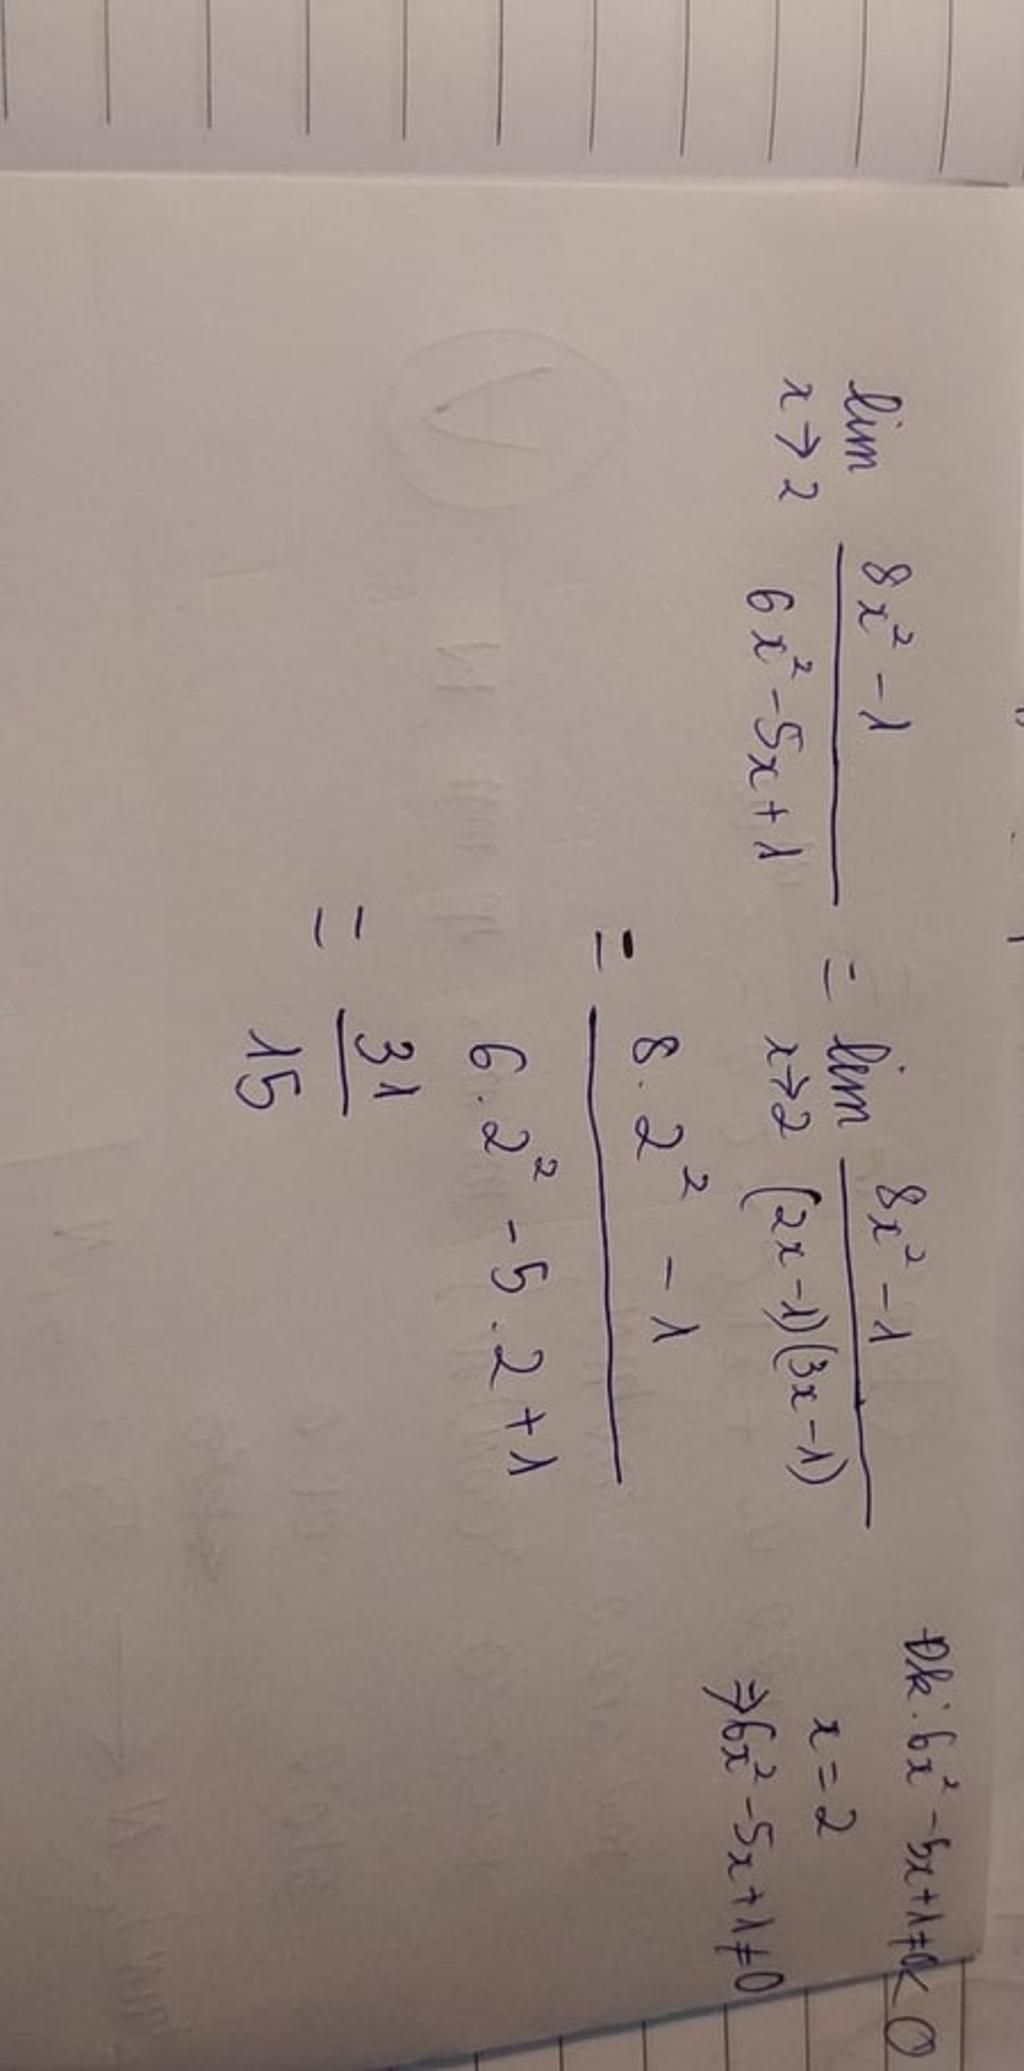 lim x→2 (8x² - 1)/(6x² - 5x + 1) = lim x→2 (8x² - 1)/((2x - 1)(3x - 1))
= (8 . 2² - 1)/(6 . 2² - 5 . 2 + 1)
= 31/15
Đk: 6x² - 5x + 1 ≠ 0
x = 2
⇒ 6x² - 5x + 1 ≠ 0